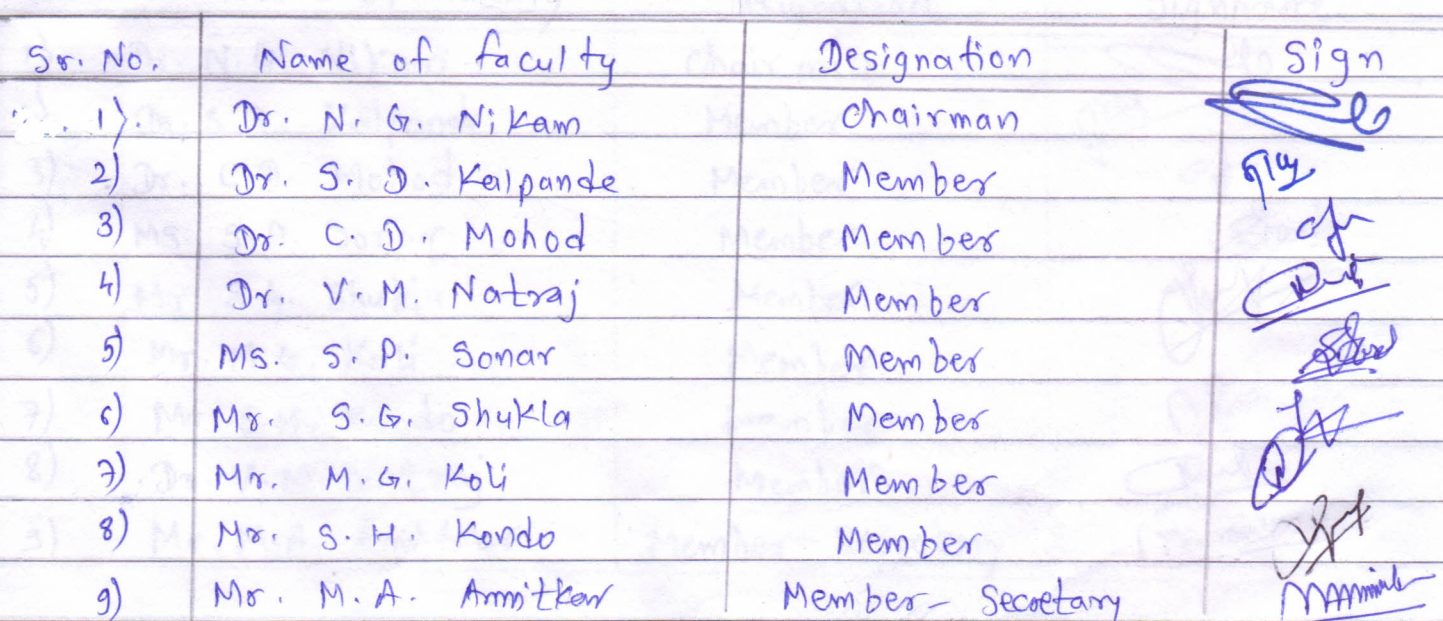 Sr. No. Name of faculty Designation Sign
1). Dr. N. G. Nikam Chairman
2) Dr. S. D. Kalpande Member
3) Dr. C. D. Mohod Member
4) Dr. V. M. Natraj Member
5) Ms. S. P. Sonar Member
6) Mr. S. G. Shukla Member
7) Mr. M. G. Koli Member
8) Mr. S. H. Kondo Member
9) Mr. M. A. Member- Secretary